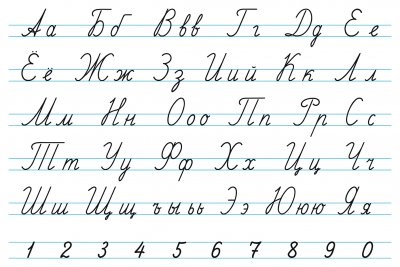 Аа Бб Ввв Гг Дд Ее
Ёё Жж Зз Иий Кк Лл
Мм Нн Ооо Пп Рр Сс
Тт Уу Фф Хх Цц Чч
Шш Щщ ъыьь Ээ Ююю Яя
1 2 3 4 5 6 7 8 9 0